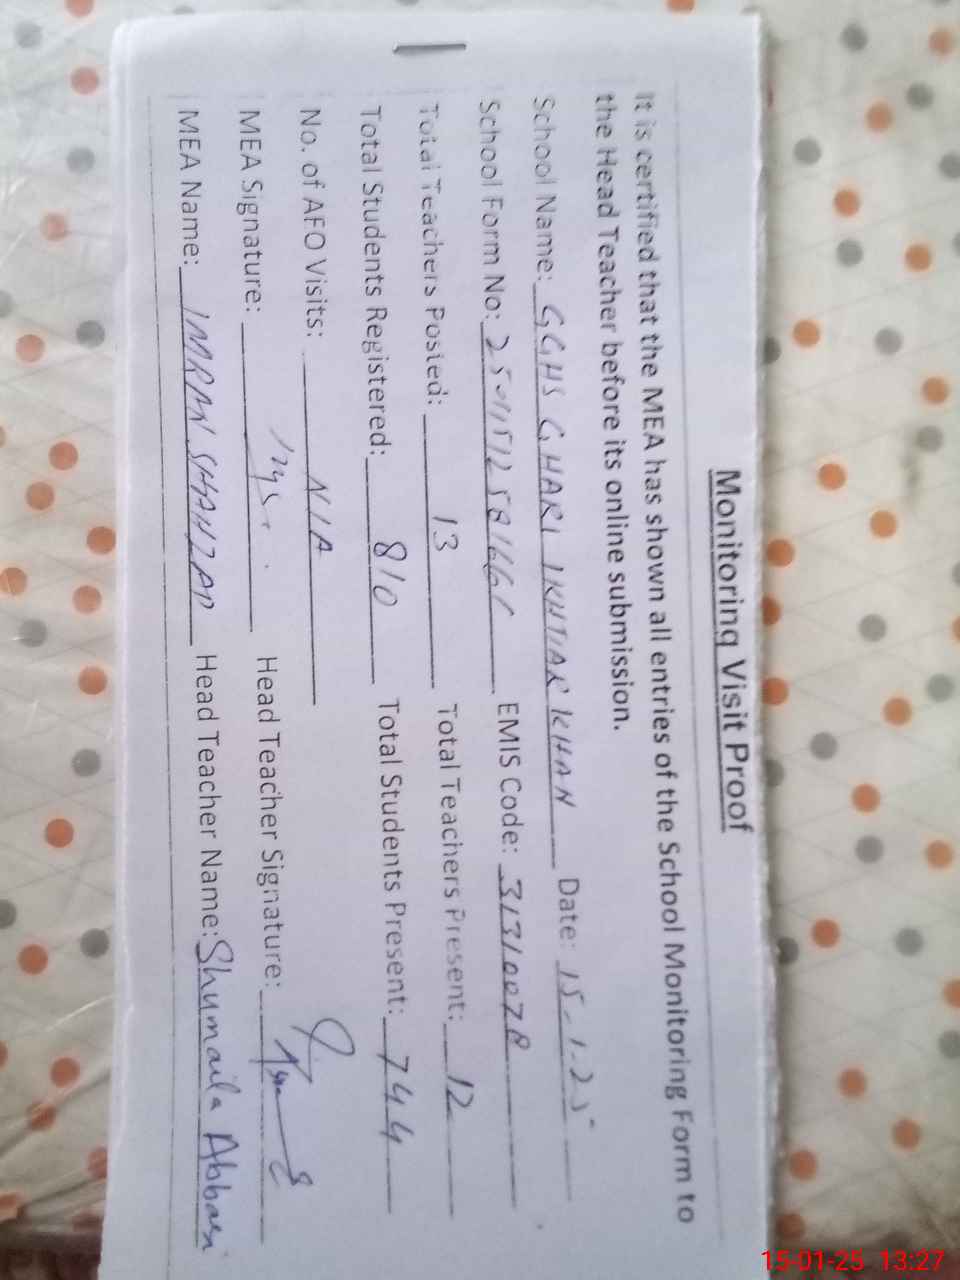 Monitoring Visit Proof
It is certified that the MEA has shown all entries of the School Monitoring Form to
the Head Teacher before its online submission.
School Name: GGHS GHARI IKHTIAR KHAN Date: 15-1-25
School Form No: EMIS Code: 31310078
Total Teachers Posted: 13 Total Teachers Present: 12
Total Students Registered: 810 Total Students Present: 744
No. of AFO Visits: N/A
MEA Signature: Head Teacher Signature:
MEA Name: IMRAN SHAHZAD Head Teacher Name: Shumaila Abbasi
15-01-25 13:27